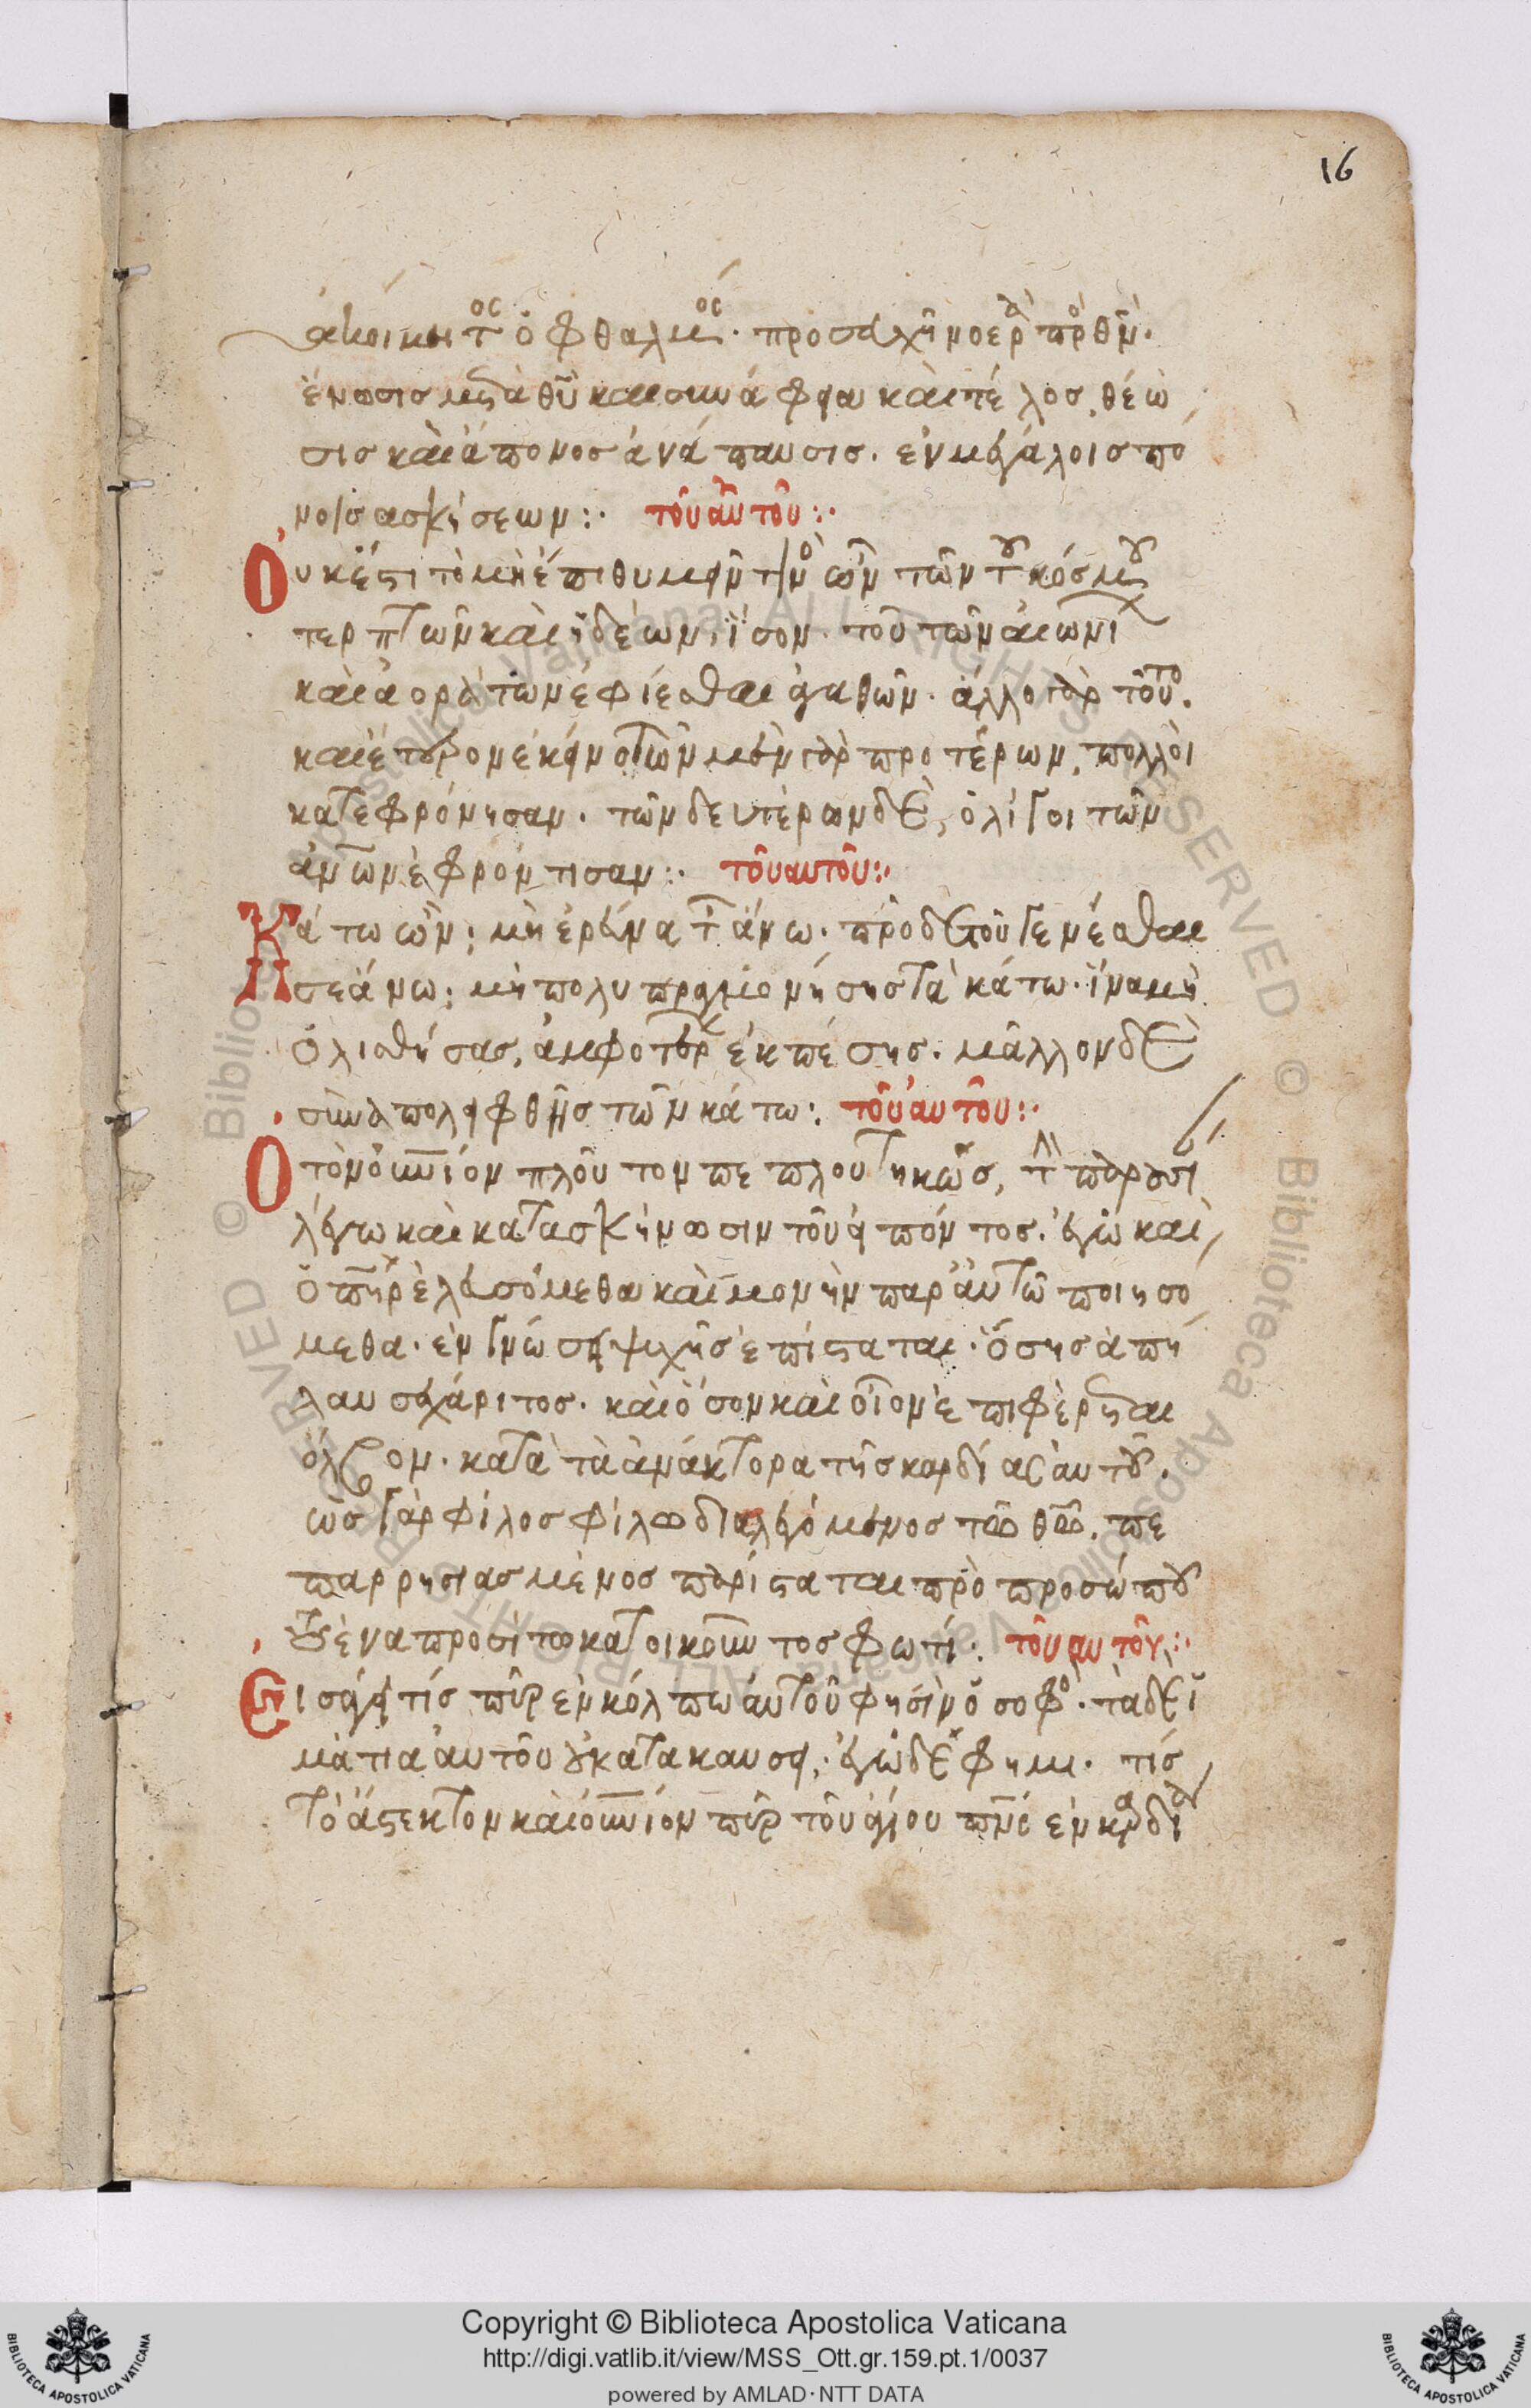 16
ἀκοίμητος ὀφθαλμός· προσευχὴ νοερὰ πρὸς θν·
ἕνωσις μετὰ θῦ καὶ συνάφεια καὶ τέλος, θέω
σις καὶ ἄπονος ἀνάπαυσις. ἐν μεγάλοις πό
νοις ἀσκήσεων:· τοῦ αὐτοῦ:·
Οὐκ ἔστι τὸ μὴ ἐπιθυμεῖν τινὸς τῶν τοῦ κόσμου
τερπνῶν καὶ ἡδέων, ἴσον τοῦ τῶν αἰωνί
καὶ ἀοράτων ἐφίεσθαι ἀγαθῶν. ἄλλο γὰρ τοῦτο.
καὶ ἕτερον ἐκεῖνο τῶν μὲν γὰρ προτέρων, πολλοὶ
κατεφρόνησαν. τῶν δευτέρων δὲ, ὀλίγοι τῶν
ἀνων ἐφρόντισαν:· τοῦ αὐτοῦ:·
Κάτω ὢν; μὴ ἐρεύνα τὰ ἄνω. πρὸ δὲ τοῦ γενέσθαι
σε ἄνω; μὴ πολυπραγμονήσῃς τὰ κάτω. ἵνα μὴ
ὀλισθήσας, ἀμφοτέρων ἐκπέσῃς. μᾶλλον δὲ
συναπολειφθῇς τῶν κάτω: τοῦ αὐτοῦ:·
Ὁ τὸν οὐνιον πλοῦτον πεπλουτηκὼς, τὴν παρουσί
λέγω καὶ κατασκήνωσιν τοῦ εἰπόντος· ἐγὼ καὶ
ὁ πηρ ἐλευσόμεθα καὶ μονὴν παρ' αὐτῶ ποιησό
μεθα. ἐν γνώσει ψυχῆς ἐπίσταται· ὅσης ἀπή
λαυσε χάριτος. καὶ ὅσον καὶ οἷον ἐπιφέρεται
ὄλβον. κατὰ τὰ ἀνάκτορα τῆς καρδίας αὐτοῦ.
ὡς γὰρ φίλος φίλω διαλεγόμενος τῶ θῶ, πε
παρρησιασμένος παρίσταται πρὸ προσώπου
τοῦ ἐν ἀπροσίτω κατοικοῦντος φωτί: τοῦ αὐτοῦ:·
Εἰσάγει τίς πῦρ ἐν κόλπω αὐτοῦ φησὶν ὁ σοφὸς. τὰ δὲ ἱ
μάτια αὐτοῦ οὐ κατακαύσει; ἐγὼ δὲ φημι. τίς
τὸ ἄστεκτον καὶ οὐνιον πῦρ τοῦ ἁγίου πνς ἐν καρδία
Copyright © Biblioteca Apostolica Vaticana
http://digi.vatlib.it/view/MSS_Ott.gr.159.pt.1/0037
powered by AMLAD·NTT DATA